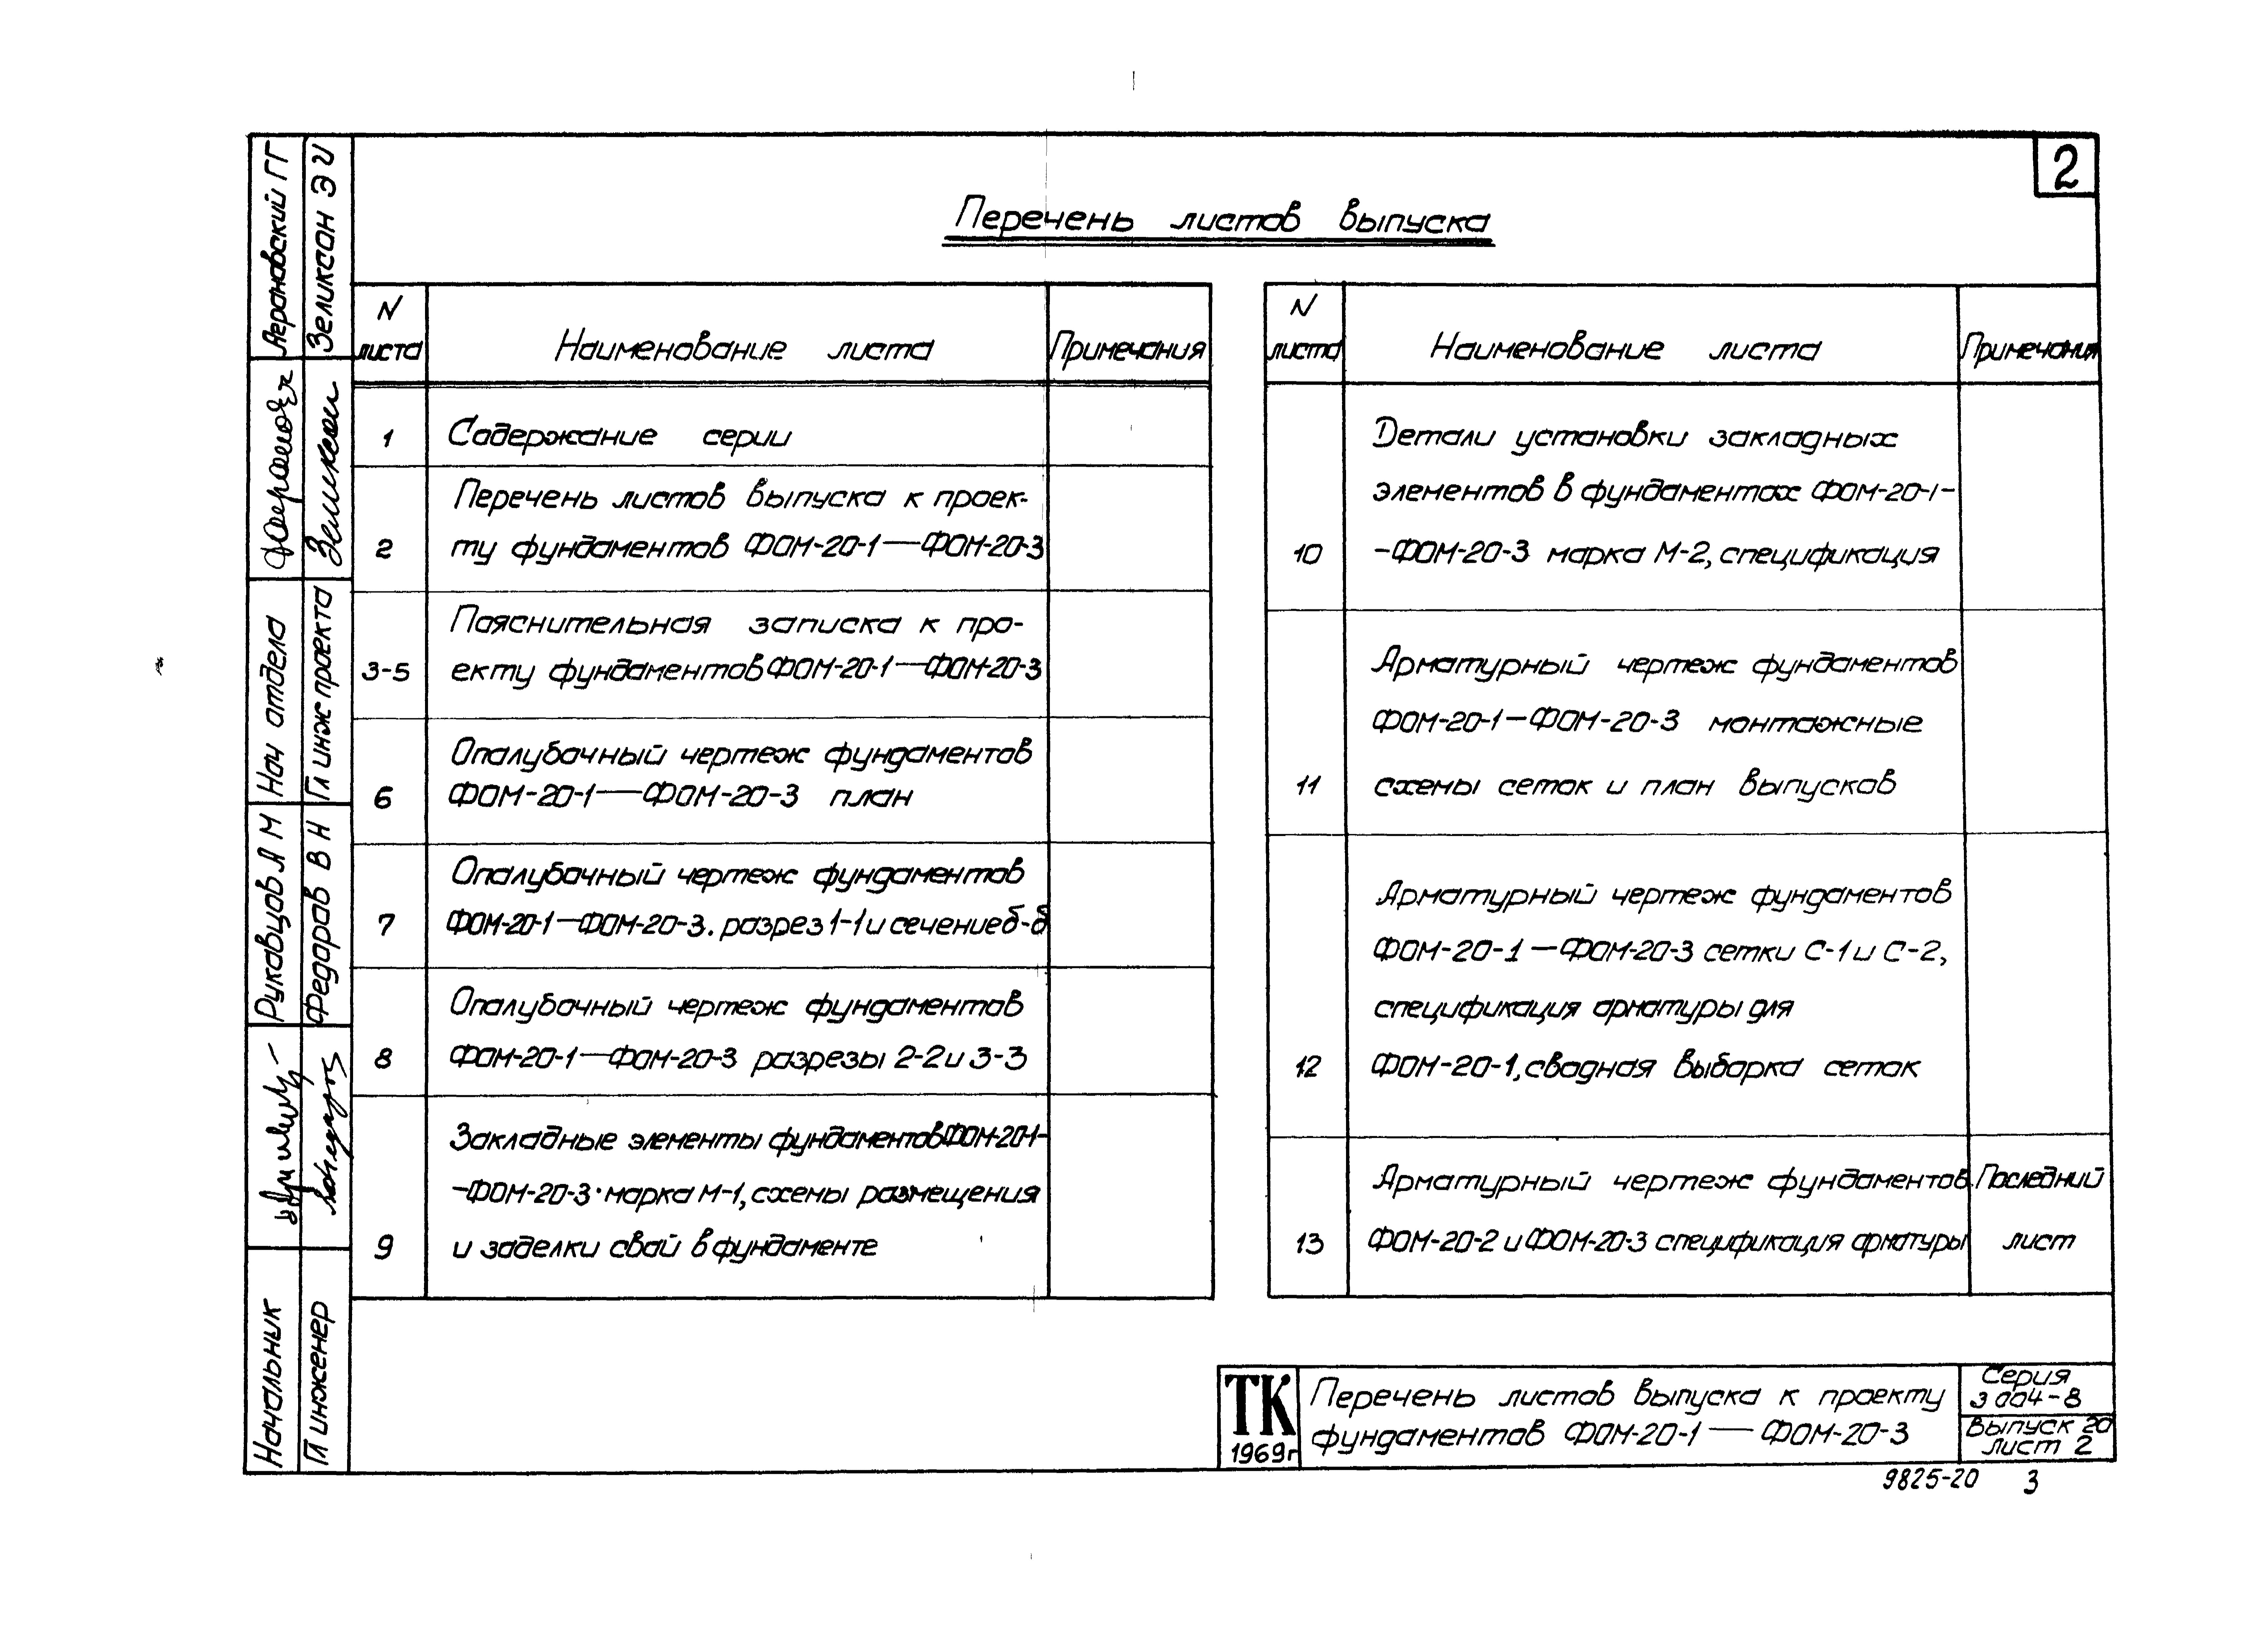 2
Перечень листов выпуска
N
листа
Наименование листа
Примечания
1
Содержание серии
2
Перечень листов выпуска к проек-
ту фундаментов ФОМ-20-1—ФОМ-20-3
3-5
Пояснительная записка к про-
екту фундаментов ФОМ-20-1—ФОМ-20-3
6
Опалубочный чертеж фундаментов
ФОМ-20-1—ФОМ-20-3 план
7
Опалубочный чертеж фундаментов
ФОМ-20-1—ФОМ-20-3. разрез 1-1 и сечение б-б
8
Опалубочный чертеж фундаментов
ФОМ-20-1—ФОМ-20-3 разрезы 2-2 и 3-3
9
Закладные элементы фундаментов ФОМ-20-1-
-ФОМ-20-3 · марка М-1, схемы размещения
и заделки свай в фундаменте
N
листа
Наименование листа
Примечания
10
Детали установки закладных
элементов в фундаментах ФОМ-20-1-
-ФОМ-20-3 марка М-2, спецификация
11
Арматурный чертеж фундаментов
ФОМ-20-1—ФОМ-20-3 монтажные
схемы сеток и план выпусков
12
Арматурный чертеж фундаментов
ФОМ-20-1—ФОМ-20-3 сетки С-1 и С-2,
спецификация арматуры для
ФОМ-20-1, сводная выборка сеток
13
Арматурный чертеж фундаментов
ФОМ-20-2 и ФОМ-20-3 спецификация арматуры
Последний
лист
Начальник Рукавцов А М Нач отдела Аграновский Г Г
Гл инженер Федоров В Н Гл инж проекта Зеликсон Э И
ТК
1969г
Перечень листов выпуска к проекту
фундаментов ФОМ-20-1 — ФОМ-20-3
Серия
3 004-8
Выпуск 20
лист 2
9825-20 3